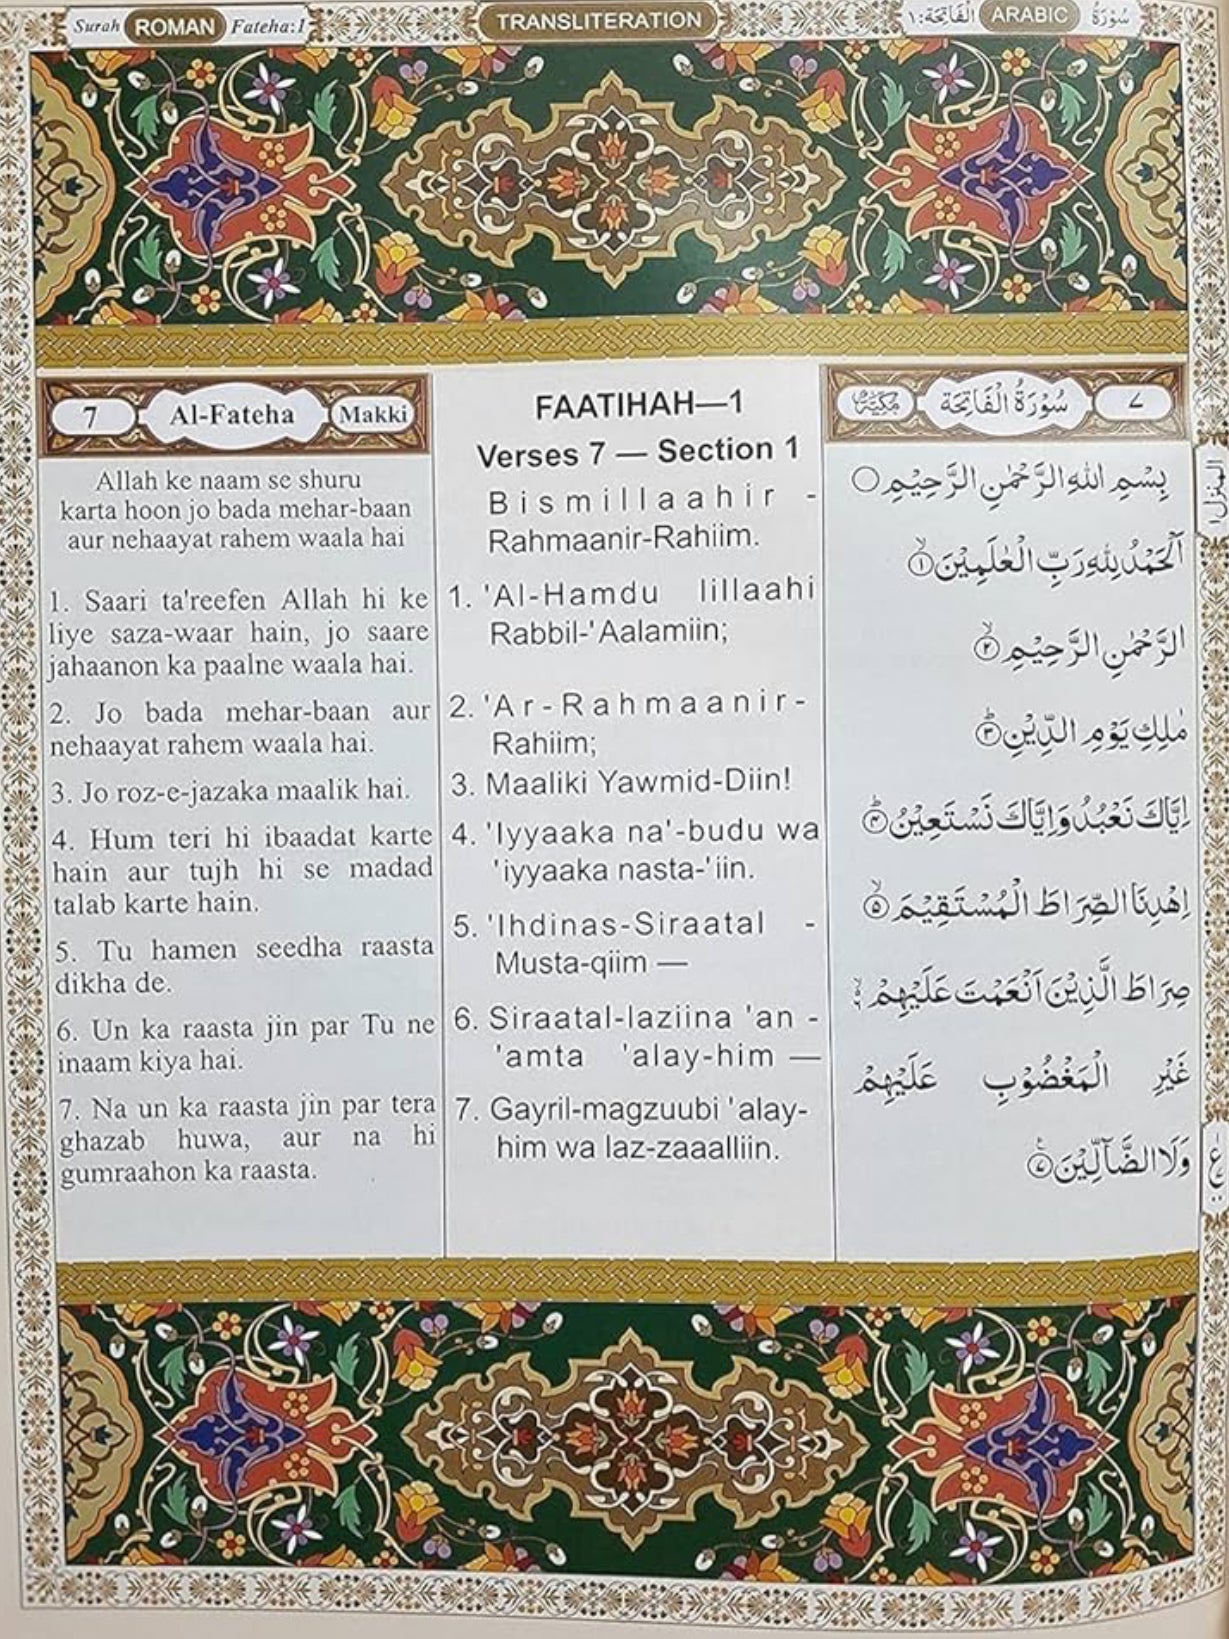 Surah ROMAN Fateha:1
TRANSLITERATION
سُوْرَةُ ARABIC الْفَاتِحَة:١
7 Al-Fateha Makki
Allah ke naam se shuru
karta hoon jo bada mehar-baan
aur nehaayat rahem waala hai
1. Saari ta'reefen Allah hi ke
liye saza-waar hain, jo saare
jahaanon ka paalne waala hai.
2. Jo bada mehar-baan aur
nehaayat rahem waala hai.
3. Jo roz-e-jazaka maalik hai.
4. Hum teri hi ibaadat karte
hain aur tujh hi se madad
talab karte hain.
5. Tu hamen seedha raasta
dikha de.
6. Un ka raasta jin par Tu ne
inaam kiya hai.
7. Na un ka raasta jin par tera
ghazab huwa, aur na hi
gumraahon ka raasta.
FAATIHAH—1
Verses 7 — Section 1
Bismillaahir -
Rahmaanir-Rahiim.
1. 'Al-Hamdu lillaahi
Rabbil-'Aalamiin;
2. 'Ar-Rahmaanir-
Rahiim;
3. Maaliki Yawmid-Diin!
4. 'Iyyaaka na'-budu wa
'iyyaaka nasta-'iin.
5. 'Ihdinas-Siraatal -
Musta-qiim —
6. Siraatal-laziina 'an -
'amta 'alay-him —
7. Gayril-magzuubi 'alay-
him wa laz-zaaalliin.
٧ سُوْرَةُ الْفَاتِحَة مَكِّيَّةٌ
بِسْمِ اللهِ الرَّحْمٰنِ الرَّحِيْمِ
اَلْحَمْدُ لِلّٰهِ رَبِّ الْعٰلَمِيْنَ ۙ﴿١﴾
الرَّحْمٰنِ الرَّحِيْمِ ۙ﴿٢﴾
مٰلِكِ يَوْمِ الدِّيْنِ ؕ﴿٣﴾
اِيَّاكَ نَعْبُدُ وَاِيَّاكَ نَسْتَعِيْنُ ؕ﴿۴﴾
اِهْدِنَا الصِّرَاطَ الْمُسْتَقِيْمَ ۙ﴿۵﴾
صِرَاطَ الَّذِيْنَ اَنْعَمْتَ عَلَيْهِمْ
غَيْرِ الْمَغْضُوْبِ عَلَيْهِمْ
وَلَا الضَّآلِّيْنَ ﴿٧﴾
المنزل ١
ع